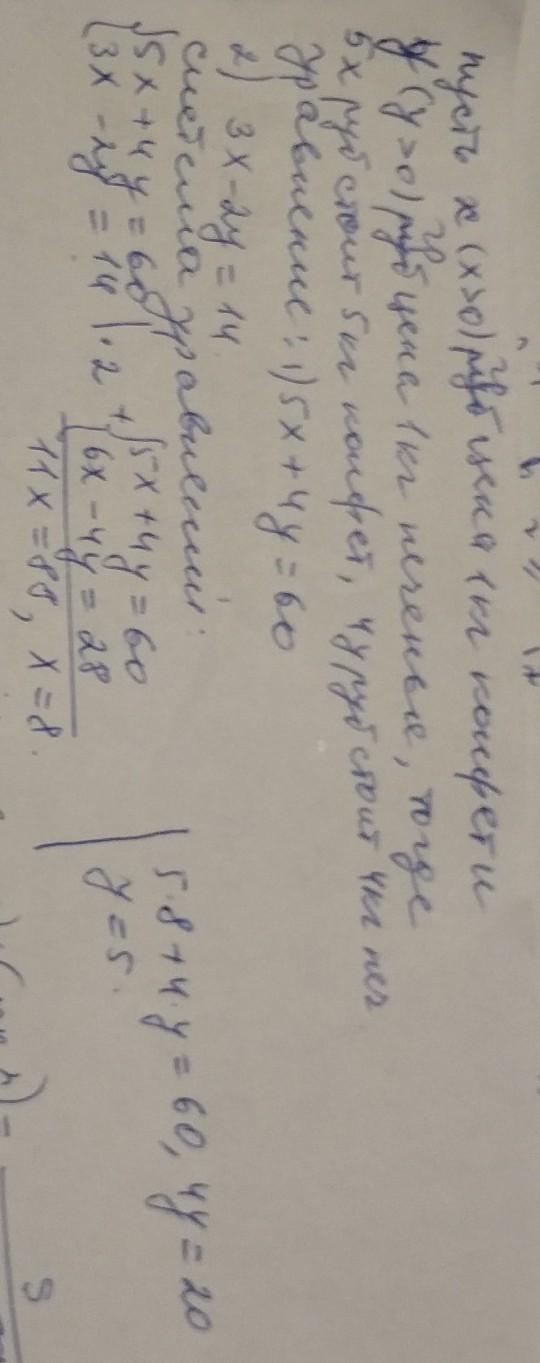 пусть x (x>0) гр цена 1кг конфет и
y (y>0) гр цена 1кг печенье, тогда
5x руб стоит 5кг конфет, 4y руб стоит 4кг печ
Уравнение: 1) 5x + 4y = 60
2) 3x - 2y = 14.
система уравнений:
{5x + 4y = 60
{3x - 2y = 14 | ·2
+ {5x + 4y = 60
{6x - 4y = 28
11x = 88, x = 8.
5·8 + 4·y = 60, 4y = 20
y = 5.